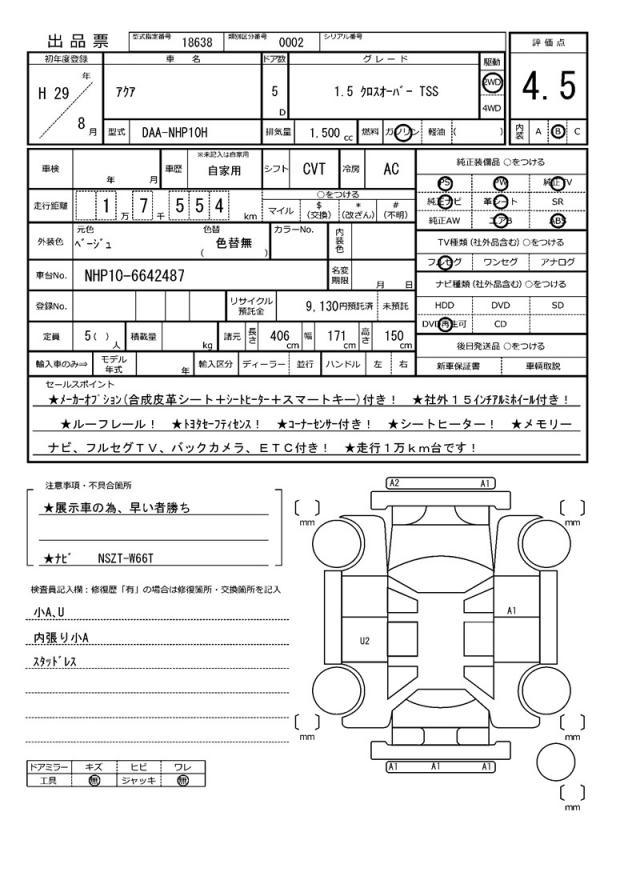 出品票
型式指定番号 18638 類別区分番号 0002 シリアル番号
評価点
4.5
内装 A B C
初年度登録 車名 ドア数 グレード 駆動
H 29 年 8 月
アクア
5 D
1.5 クロスオーバー TSS
2WD
4WD
型式 DAA-NHP10H 排気量 1,500 cc 燃料 ガソリン 軽油 ( )
車検 年 月 車歴 ※未記入は自家用 自家用 シフト CVT 冷房 AC
走行距離 1万7千554 km
○をつける
マイル $(交換) *(改ざん) #(不明)
外装色 元色 ベージュ 色替 ( 色替無 ) カラーNo. 内装色
車台No. NHP10-6642487 名変期限 月 日
登録No. リサイクル預託金 9,130円預託済 未預託
定員 5( )人 積載量 kg 諸元 長さ 406 cm 幅 171 cm 高さ 150 cm
輸入車のみ⇒ モデル年式 年 輸入区分 ディーラー 並行 ハンドル 左 右
純正装備品 ○をつける
PS PW 純正TV
純正ナビ 革シート SR
純正AW エアB ABS
TV種類(社外品含む)○をつける
フルセグ ワンセグ アナログ
ナビ種類(社外品含む)○をつける
HDD DVD SD
DVD再生可 CD
後日発送品 ○をつける
新車保証書 車輌取説
セールスポイント
★メーカーオプション(合成皮革シート+シートヒーター+スマートキー)付き! ★社外15インチアルミホイール付き!
★ルーフレール! ★トヨタセーフティセンス! ★コーナーセンサー付き! ★シートヒーター! ★メモリー
ナビ、フルセグTV、バックカメラ、ETC付き! ★走行1万km台です!
注意事項・不具合箇所
★展示車の為、早い者勝ち
★ナビ NSZT-W66T
検査員記入欄:修復歴「有」の場合は修復箇所・交換箇所を記入
小A、U
内張り小A
スタッドレス
ドアミラー キズ ヒビ ワレ
工具 無 ジャッキ 無
A2 A1
mm
mm
A1
U2
mm
mm
A1 A1 A1
mm